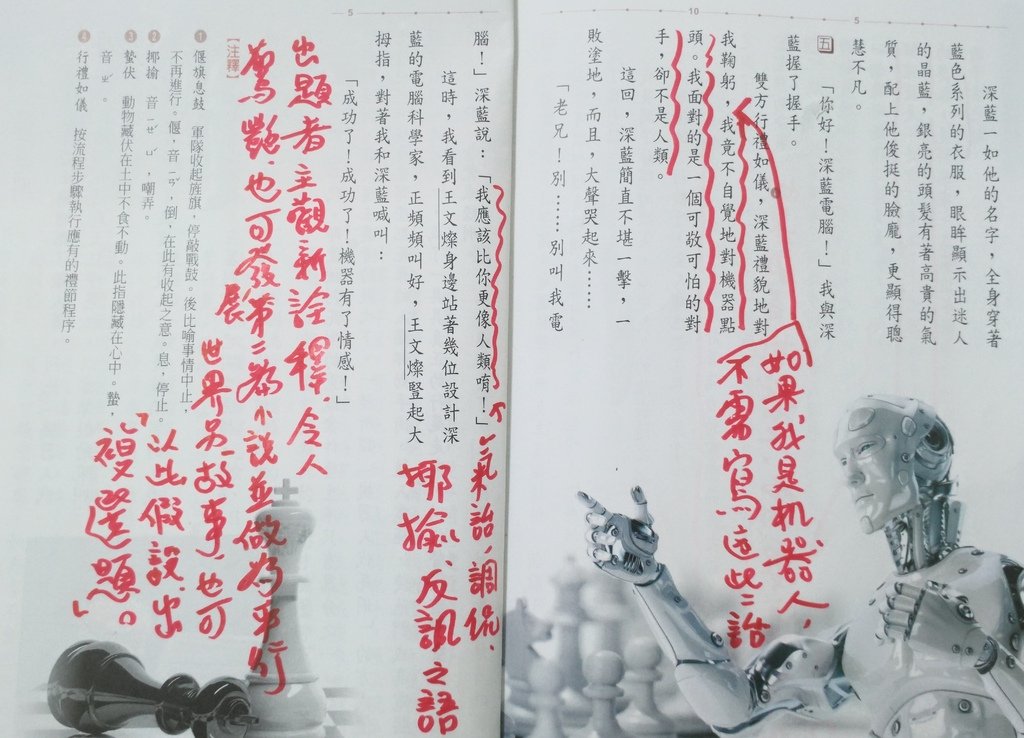 5
10
5
深藍一如他的名字，全身穿著
藍色系列的衣服，眼眸顯示出迷人
的晶藍，銀亮的頭髮有著高貴的氣
質，配上他俊挺的臉龐，更顯得聰
慧不凡。
五
「你好！深藍電腦！」我與深
藍握了握手。
雙方行禮如儀，深藍禮貌地對
我鞠躬，我竟不自覺地對機器點
頭。我面對的是一個可敬可怕的對
手，卻不是人類。
這回，深藍簡直不堪一擊，一
敗塗地，而且，大聲哭起來……
「老兄！別……別叫我電
如果我是机器人，
不需寫這些話
腦！」深藍說：「我應該比你更像人類唷！」
這時，我看到王文燦身邊站著幾位設計深
藍的電腦科學家，正頻頻叫好，王文燦豎起大
拇指，對著我和深藍喊叫：
「成功了！成功了！機器有了情感！」
氣話，調侃、
揶揄、反諷之語
出題者主觀新詮釋，令人
驚艷，也可發展第二篇小說並做為平行
世界另故事，也可
「以此假設，出
複選題。」
【注釋】
❶偃旗息鼓　軍隊收起旌旗，停敲戰鼓。後比喻事情中止，
不再進行。偃，音ㄧㄢˇ，倒，在此有收起之意。息，停止。
❷揶揄　音ㄧㄝˊ ㄩˊ，嘲弄。
❸蟄伏　動物藏伏在土中不食不動。此指隱藏在心中。蟄，
音ㄓˊ。
❹行禮如儀　按流程步驟執行應有的禮節程序。